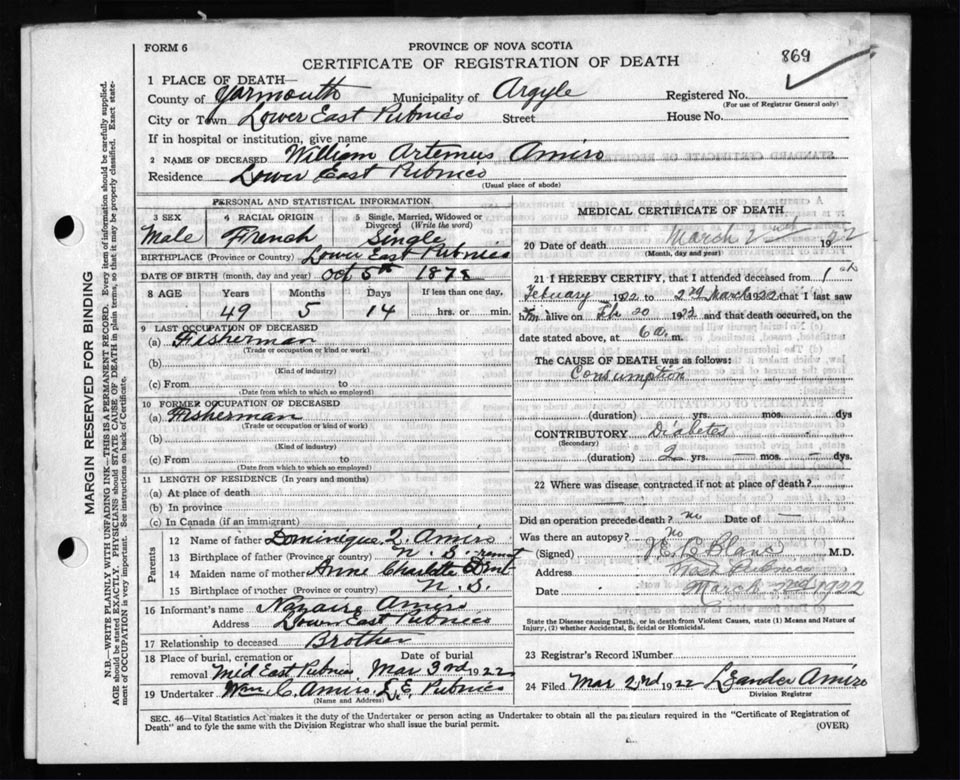 FORM 6
PROVINCE OF NOVA SCOTIA
CERTIFICATE OF REGISTRATION OF DEATH
869
1 PLACE OF DEATH—
County of Yarmouth Municipality of Argyle Registered No.
(For use of Registrar General only)
City or Town Lower East Pubnico Street House No.
If in hospital or institution, give name
2 NAME OF DECEASED William Artemus Amiro
Residence Lower East Pubnico
(Usual place of abode)
PERSONAL AND STATISTICAL INFORMATION
3 SEX 4 RACIAL ORIGIN 5 Single, Married, Widowed or Divorced (Write the word)
Male French Single
BIRTHPLACE (Province or Country) Lower East Pubnico
DATE OF BIRTH (month, day and year) Oct 5th 1878
8 AGE Years Months Days If less than one day,
49 5 14 hrs. or min.
9 LAST OCCUPATION OF DECEASED
(a) Fisherman
(Trade or occupation or kind or work)
(b)
(Kind of industry)
(c) From to
(Date from which to which so employed)
10 FORMER OCCUPATION OF DECEASED
(a) Fisherman
(Trade or occupation or kind of work)
(b)
(Kind of industry)
(c) From to
(Date from which to which so employed)
11 LENGTH OF RESIDENCE (In years and months)
(a) At place of death
(b) In province
(c) In Canada (if an immigrant)
Parents
12 Name of father Dominique L. Amiro
13 Birthplace of father (Province or country) N. S.
14 Maiden name of mother Anne Charlotte
15 Birthplace of mother (Province or country) N. S.
16 Informant's name Nazaire Amiro
Address Lower East Pubnico
17 Relationship to deceased Brother
18 Place of burial, cremation or removal Date of burial
Mid East Pubnico Mar 3rd 1922
19 Undertaker Wm C. Amiro L. E. Pubnico
(Name and Address)
MEDICAL CERTIFICATE OF DEATH
20 Date of death March 2 1922
(Month, day and year)
21 I HEREBY CERTIFY, that I attended deceased from 1st
February 1922 to 2nd March 1922 that I last saw
him alive on Feb 20 1922 and that death occurred, on the
date stated above, at 6 a. m.
The CAUSE OF DEATH was as follows:
Consumption
(duration) yrs. mos. dys
CONTRIBUTORY Diabetes
(Secondary)
(duration) 2 yrs. — mos. — dys.
22 Where was disease contracted if not at place of death?
—
Did an operation precede death? no Date of —
Was there an autopsy? No
(Signed) LeBlanc M.D.
Address West Pubnico
Date March 2nd 1922
State the Disease causing Death, or in death from Violent Causes, state (1) Means and Nature of
Injury, (2) whether Accidental, Suicidal or Homicidal.
23 Registrar's Record Number
24 Filed Mar 2nd 1922 Leander Amiro
Division Registrar
SEC. 46—Vital Statistics Act makes it the duty of the Undertaker or person acting as Undertaker to obtain all the particulars required in the "Certificate of Registration of
Death" and to fyle the same with the Division Registrar who shall issue the burial permit.
(OVER)
MARGIN RESERVED FOR BINDING
N.B.—WRITE PLAINLY WITH UNFADING INK—THIS IS A PERMANENT RECORD. Every item of information should be carefully supplied.
AGE should be stated EXACTLY. PHYSICIANS should STATE CAUSE OF DEATH in plain terms, so that it may be properly classified. Exact statement
of OCCUPATION is very important. See instructions on back of Certificate.